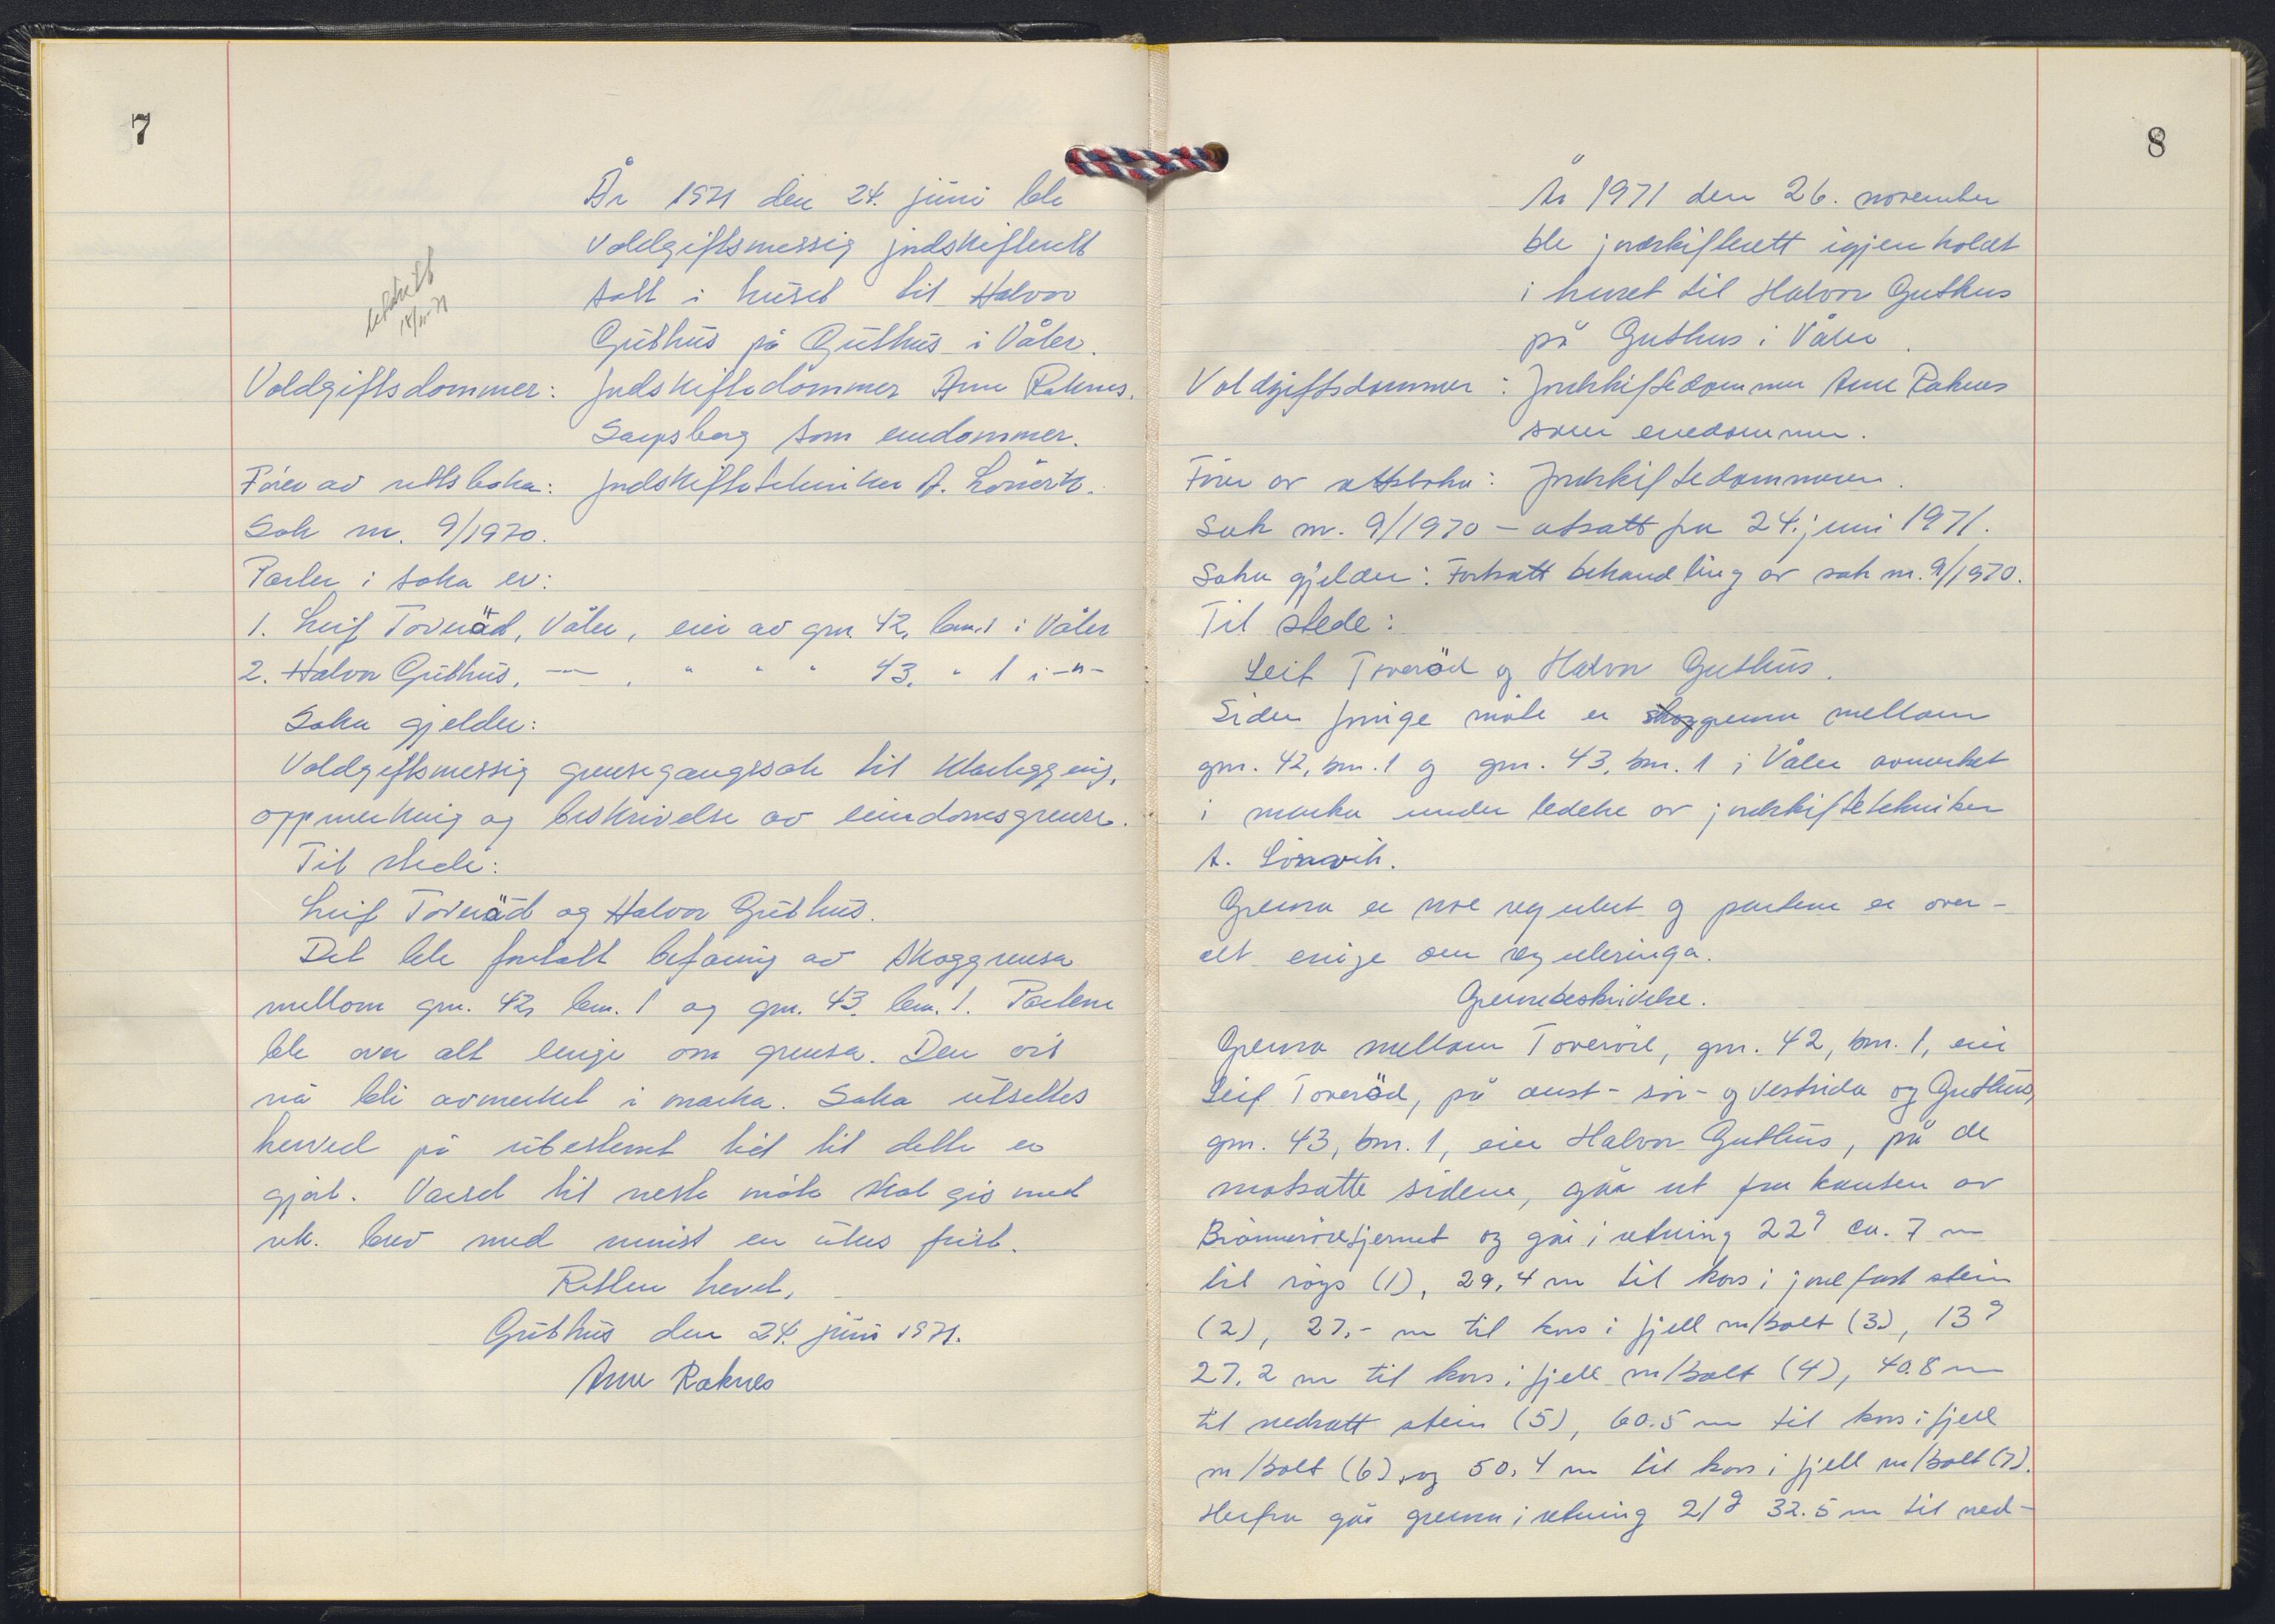 7
År 1971 den 24. juni ble
voldgiftsmessig jordskifterett
satt i huset til Halvor
Guthus på Guthus i Våler.
Voldgiftsdommer: Jordskiftedommer Arne Raknes.
Sarpsborg som enedommer.
Fører av rettsboka: Jordskiftetekniker A.
Sak nr. 9/1970.
Parter i saka er:
1. Leif Toverød, Våler, eier av gnr. 42, bnr. 1 i Våler
2. Halvor Guthus, — , " " " 43, " 1 i -"-
Saka gjelder:
Voldgiftsmessig grensegangssak til klarlegging,
oppmerking og beskrivelse av eiendomsgrense.
Til stede:
Leif Toverød og Halvor Guthus.
Det ble foretatt befaring av skoggrensa
mellom gnr. 42, bnr. 1 og gnr. 43, bnr. 1. Partene
ble over alt enige om grensa. Den vil
nå bli avmerket i marka. Saka utsettes
herved på ubestemt tid til dette er
gjort. Varsel til neste møte skal gis med
rek. brev med minst en ukes frist.
Retten hevet,
Guthus den 24. juni 1971.
Arne Raknes
8
År 1971 den 26. november
ble jordskifterett igjen holdt
i huset til Halvor Guthus
på Guthus i Våler.
Voldgiftsdommer: Jordskiftedommer Arne Raknes
som enedommer.
Fører av rettsboka: Jordskiftedommeren.
Sak nr. 9/1970 – utsatt fra 24. juni 1971.
Saka gjelder: Fortsatt behandling av sak nr. 9/1970.
Til stede:
Leif Toverød og Halvor Guthus.
Siden forrige møte er skoggrensa mellom
gnr. 42, bnr. 1 og gnr. 43, bnr. 1 i Våler avmerket
i marka under ledelse av jordskiftetekniker
A.
Grensa er noe regulert og partene er over-
alt enige om reguleringa.
Grensebeskrivelse.
Grensa mellom Toverød, gnr. 42, bnr. 1, eier
Leif Toverød, på aust- sør- og vestsida og Guthus,
gnr. 43, bnr. 1, eier Halvor Guthus, på de
motsatte sidene, går ut fra kanten av
Brønnerødtjernet og går i retning 22g ca. 7 m
til røys (1), 29,4 m til kors i jordfast stein
(2), 27,- m til kors i fjell m/bolt (3), 13g
27,2 m til kors i fjell m/bolt (4), 40.8 m
til nedsatt stein (5), 60.5 m til kors i fjell
m/bolt (6), og 50,4 m til kors i fjell m/bolt (7).
Herfra går grensa i retning 21g 32.5 m til ned-